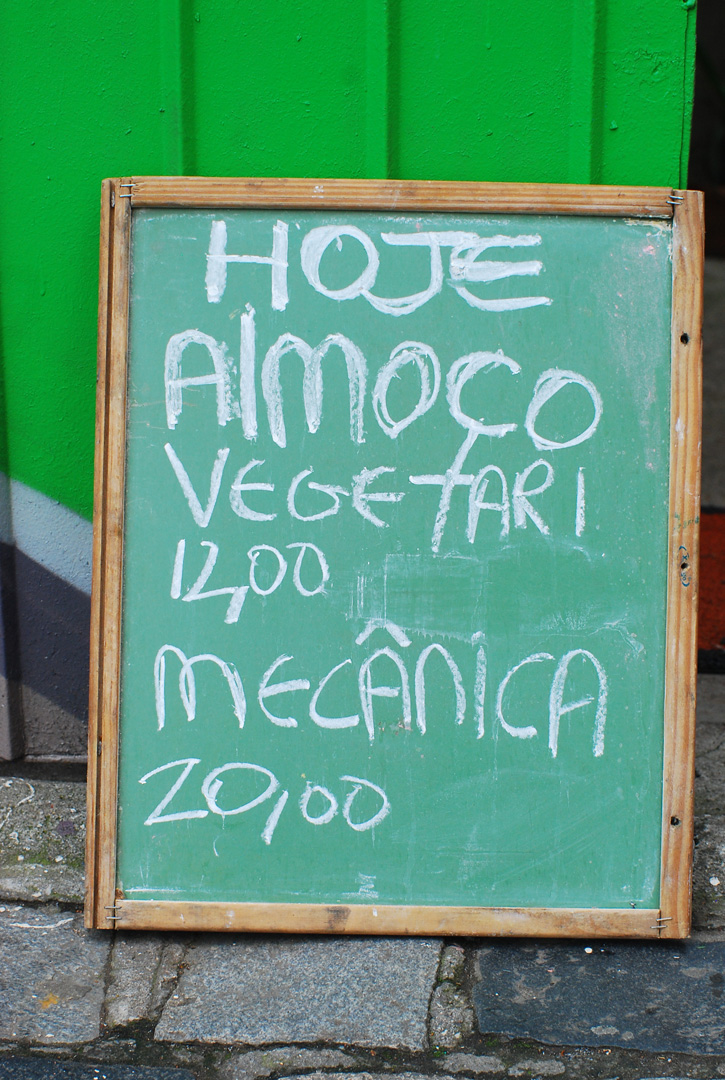 HOJE
AlMOÇO
VEGETARI
12,00
MECÂNICA
20,00